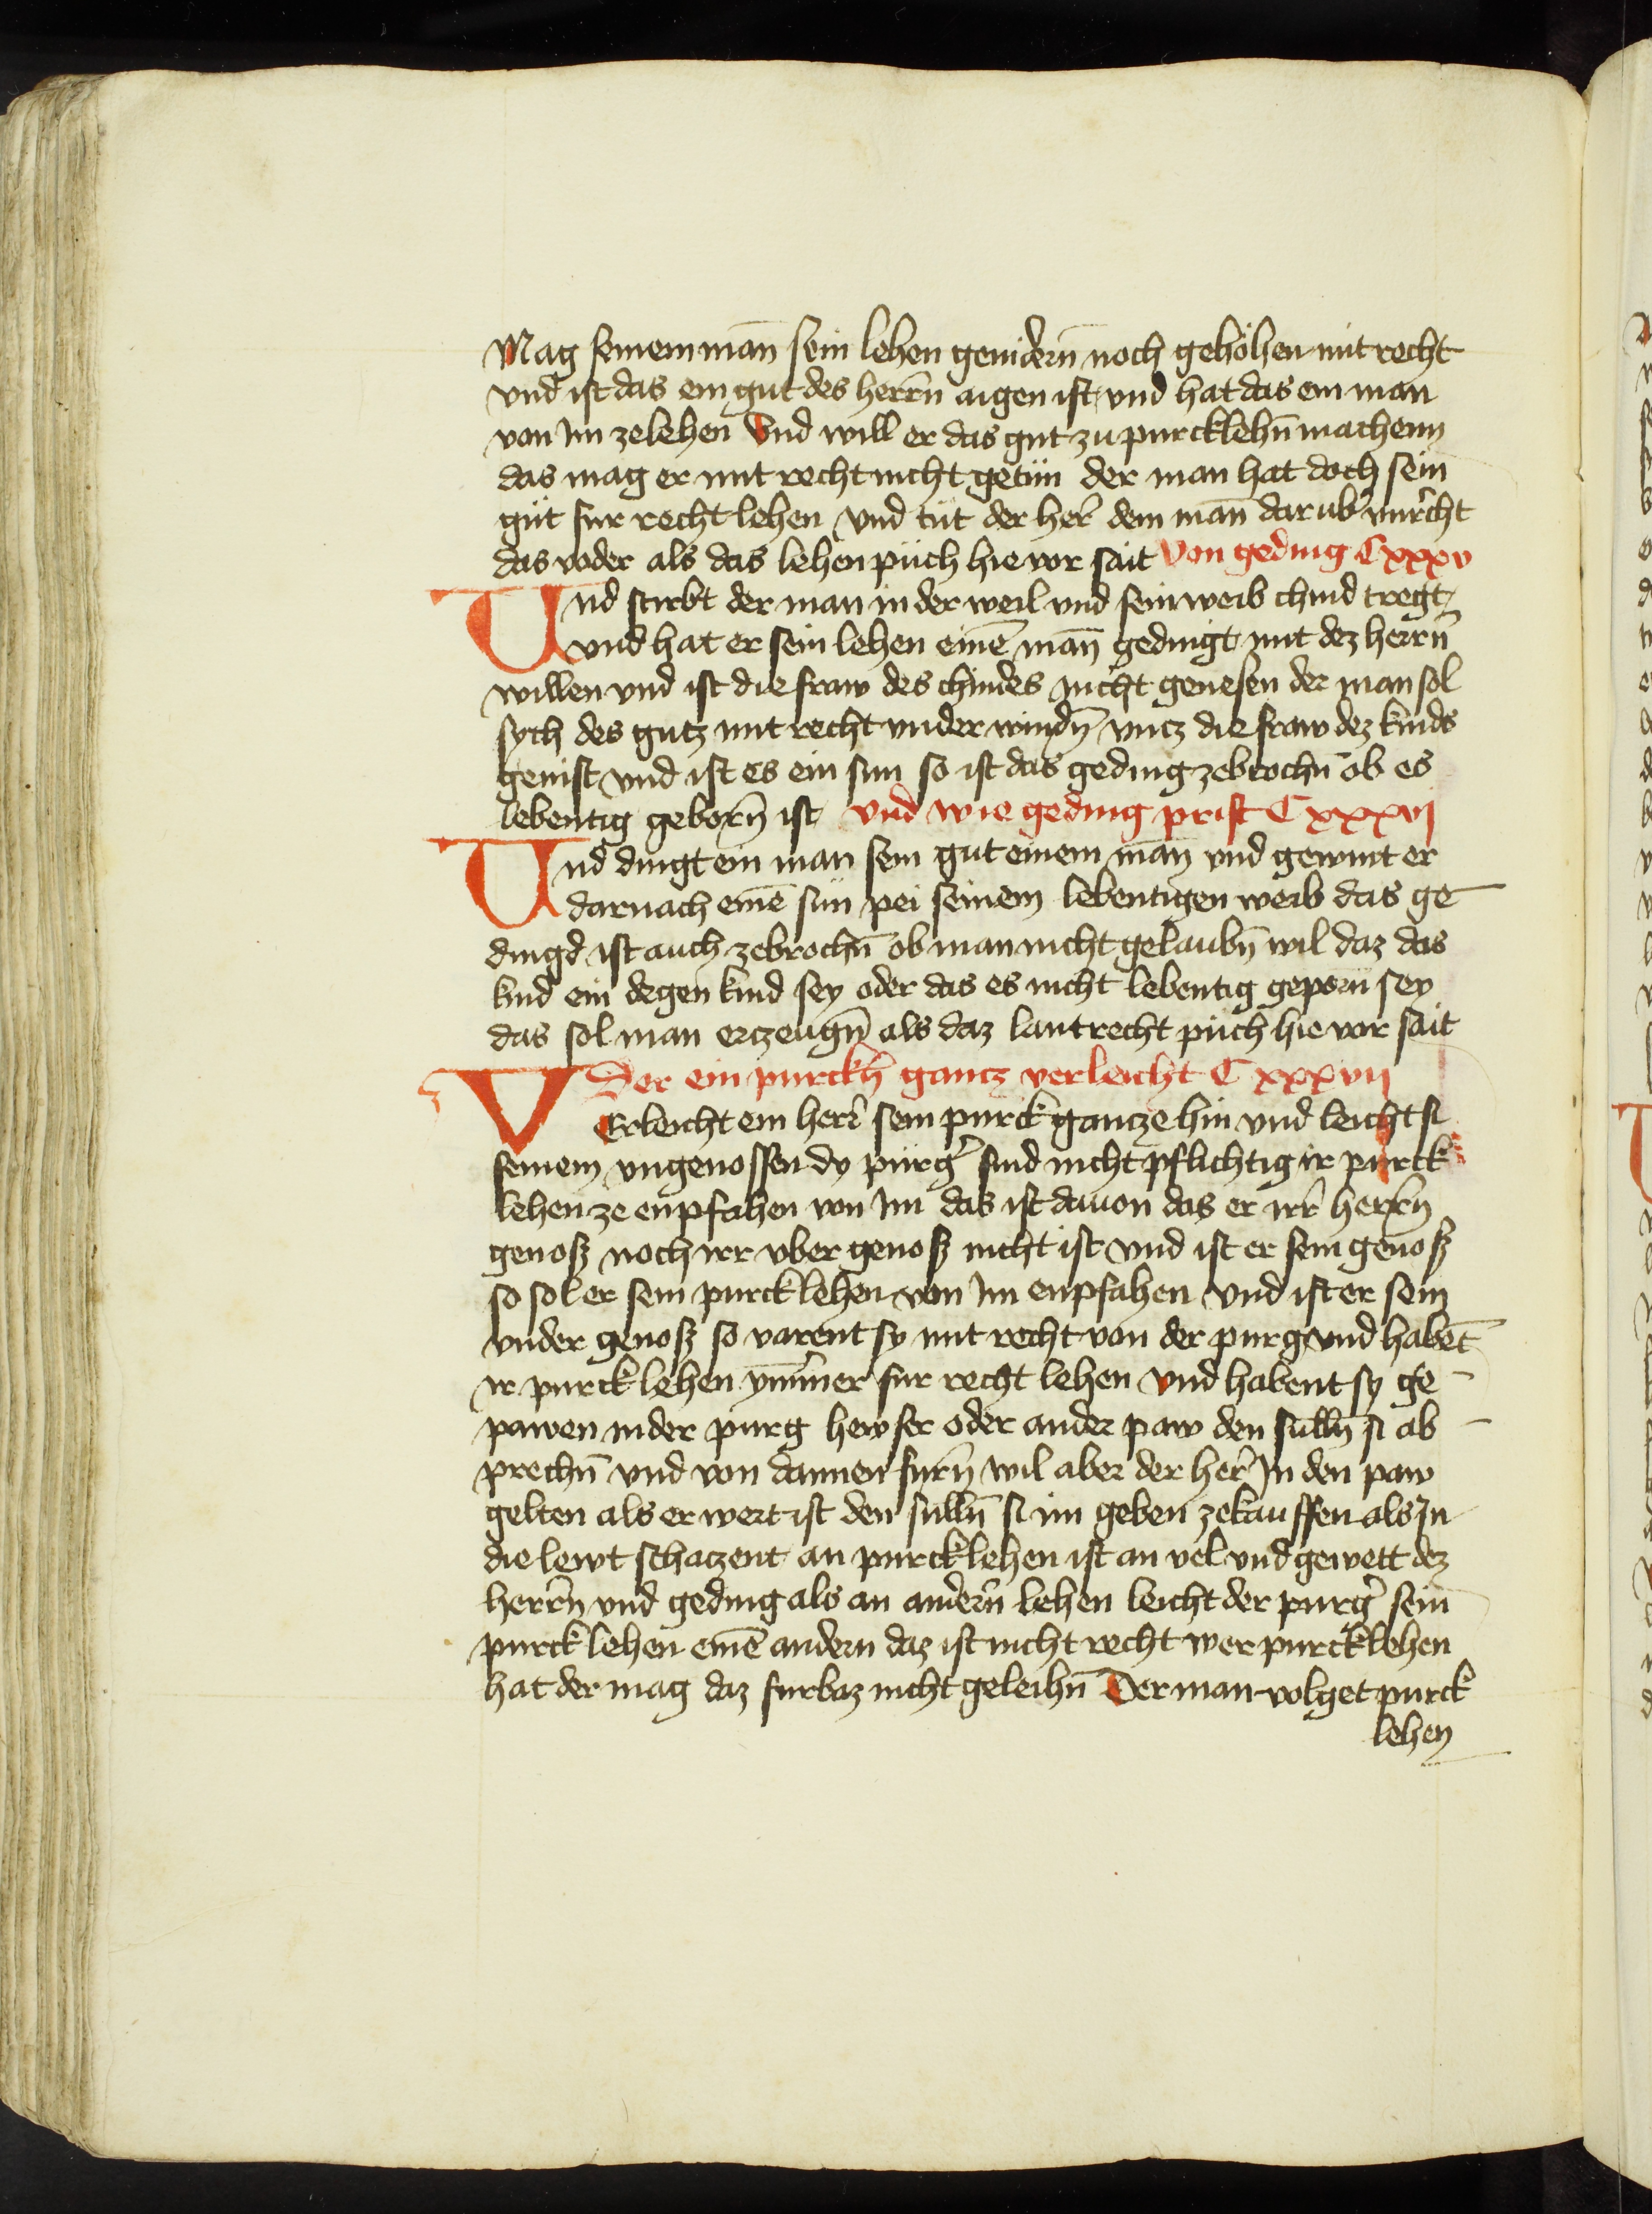 Mag seinem man̄ sein lehen genidern̄ noch gehöhen mit recht
vnd ist das ein gut des herrn̄ aigen ist vnd hat das ein man
von Im zelehen Vnd will er das gut zu purcklehn̄ machenn
das mag er mit recht nicht getün der man hat doch sein
güt fur recht lehen vnd tüt der her̄ dem man̄ dar ub̄ vnrecht
das wider als das lehen püch hie vor sait Von geding Cxxxv
Vnd stirbt der man in der weil vnd sein weib chind tregt
vnd hat er sein lehen einē man̄ gedingt mit dez herrn̄
willen vnd ist die fraw des chindes nicht genesen der man sol
sych des gutz mit recht vnder windn̄ vntz die fraw dez kinds
genist vnd ist es ein sun so ist das geding zebrochn̄ ob es
lebentig geborn̄ ist vnd wie geding prist Cxxxvj
Vnd dingt ein man sein gut einem man̄ vnd gewint er
darnach einē sün pei seinem lebentigen weib das ge
dingd ist auch zebrochn̄ ob man nicht gelaubn̄ wil daz das
kind ein degen kind sey oder das es nicht lebentig geporn sey
das sol man erzeugn̄ als daz lantrecht püch hie vor sait
Der ein purckh̄ gantz verleicht Cxxxvij
VErleicht ein herr̄ sein purck gantze hin vnd leicht si
seinem vngenossen dy purg̉ sind nicht pflichtig ir purck
lehen ze enpfahen von Im das ist dauon das er irr̄ herrn̄
genosz noch irr vber genosz nicht ist vnd ist er sein genosz
so sol er sein purcklehen von Im enpfahen Vnd ist er sein
vnder genosz so varent sy mit recht von der purg vnd habēt
ir purck lehen ym̄mer fur recht lehen Vnd habent sy ge
pawen in der purg hewser oder ander paw den sulln̄ si ab
prechn̄ vnd von dannen furn̄ wil aber der her̄ In den paw
gelten als er wert ist den sulln̄ si im geben zekauffen als In
die lewt schatzent an purcklehen ist an vel vnd gewett dez
herrn̄ vnd geding als an andern̄ lehen leicht der purg̉ sein
purck lehen einē andern daz ist nicht recht wer purcklehen
hat der mag daz furbaz nicht geleihn̄ Der man volget purck
lehen